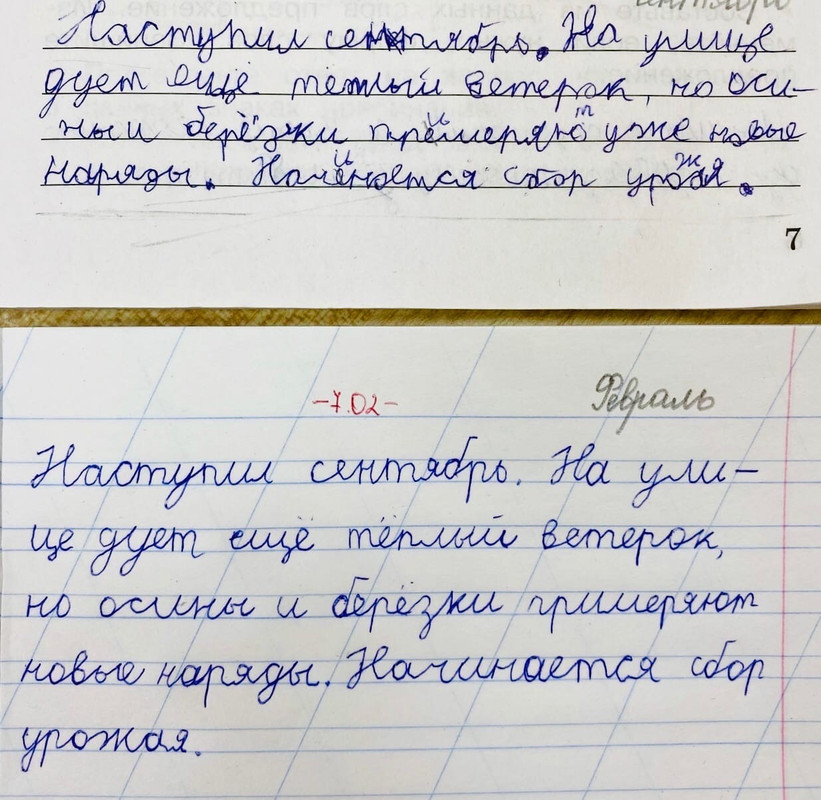 сентябрь
Наступил сентябрь. На улице
дует ещё тёплый ветерок, но оси-
ны и берёзки примеряют уже новые
наряды. Начинается сбор урожая.
7
-7.02-
Февраль
Наступил сентябрь. На ули-
це дует ещё тёплый ветерок,
но осины и берёзки примеряют
новые наряды. Начинается сбор
урожая.